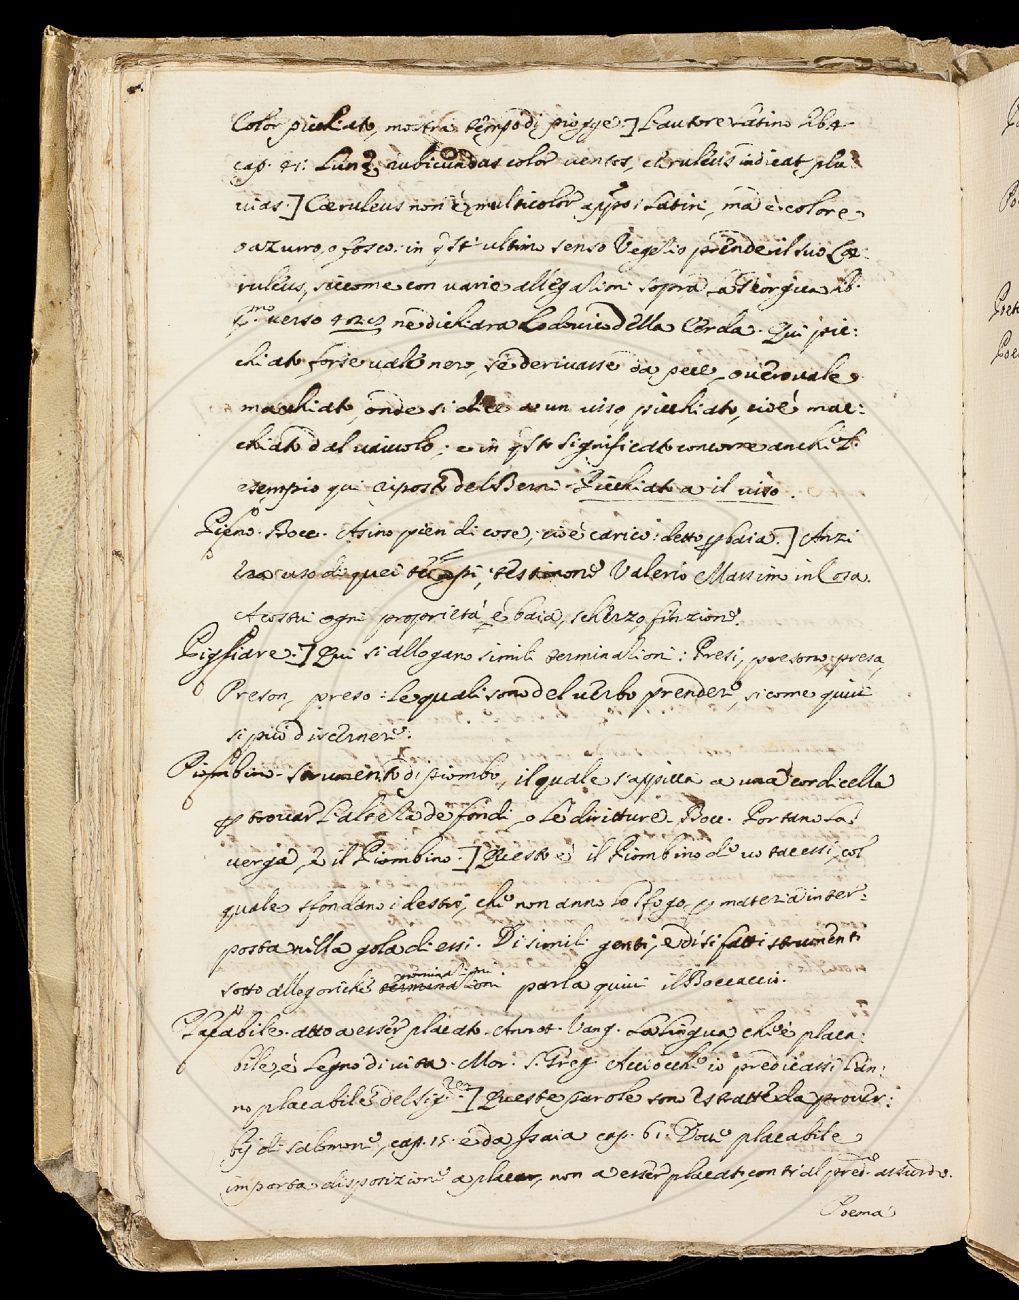 Color picchiato, mostra tempo di piogge.] L'autore latino lib. 4
cap. 41: Lunę rubicundus color ventos, cęruleus indicat plu
vias.] Cæruleus non è multicolor appo i Latini, ma è colore
o azurro, o fosco: in qsti ultimo senso Vegetio prende il suo Cæ:
ruleus, siccome con varie allegationi sopra la Georgica lib.
pmo verso ne dichiara Lodovico della Cerda. Qui pic:
chiato forse vale nero, se derivasse da pece, overo vale
macchiato, onde si dice a un viso picchiato, cioè mac:
chiato dal vaivolo; e in qsto significato concorre anche l'
esempio qui riposto del Berni. Picchiato a il viso.
Pieno. Bocc. Asino pien di cose; cioè carico: detto p baia.] Anzi
era uso di quei tempi; testimone Valerio Massimo in Cosa.
A costui ogni proprietà è baia, scherzo, finzione.
Pigliare.] Qui si allogano simili terminationi: Presi, presono, presa,
Preson, preso: le quali sono del verbo prendere, sicome quivi
si può discernere.
Piombino. Strumento di piombo, il quale s'appicca a una cordicella
p trovar l'altezza de fondi, o le diritture. Bocc. Portano la
verga, e il Piombino.] Questo è il Piombino de votacessi, col
quale sfondano i destri, che non anno lo sfogo, p materia inter:
posta nella gola di essi. Di simili genti, e di sì fatti strumenti
sotto allegoriche terminationi nominationi parla quivi il Boccaccio.
Placabile. atto a esser placato. Annot. Vang. La lingua, che è placa:
bile, è legno di vita. Mor. S. Greg. Acciocchè io predicassi l'an:
no placabile del Sigre.] Queste parole son estratte da prover:
bij di Salomone, cap. 15. e da Isaia cap. 61. Dove placabile
importa disposizione a placar, non a esser placato, con ti al pred.o assurdo.
Poema